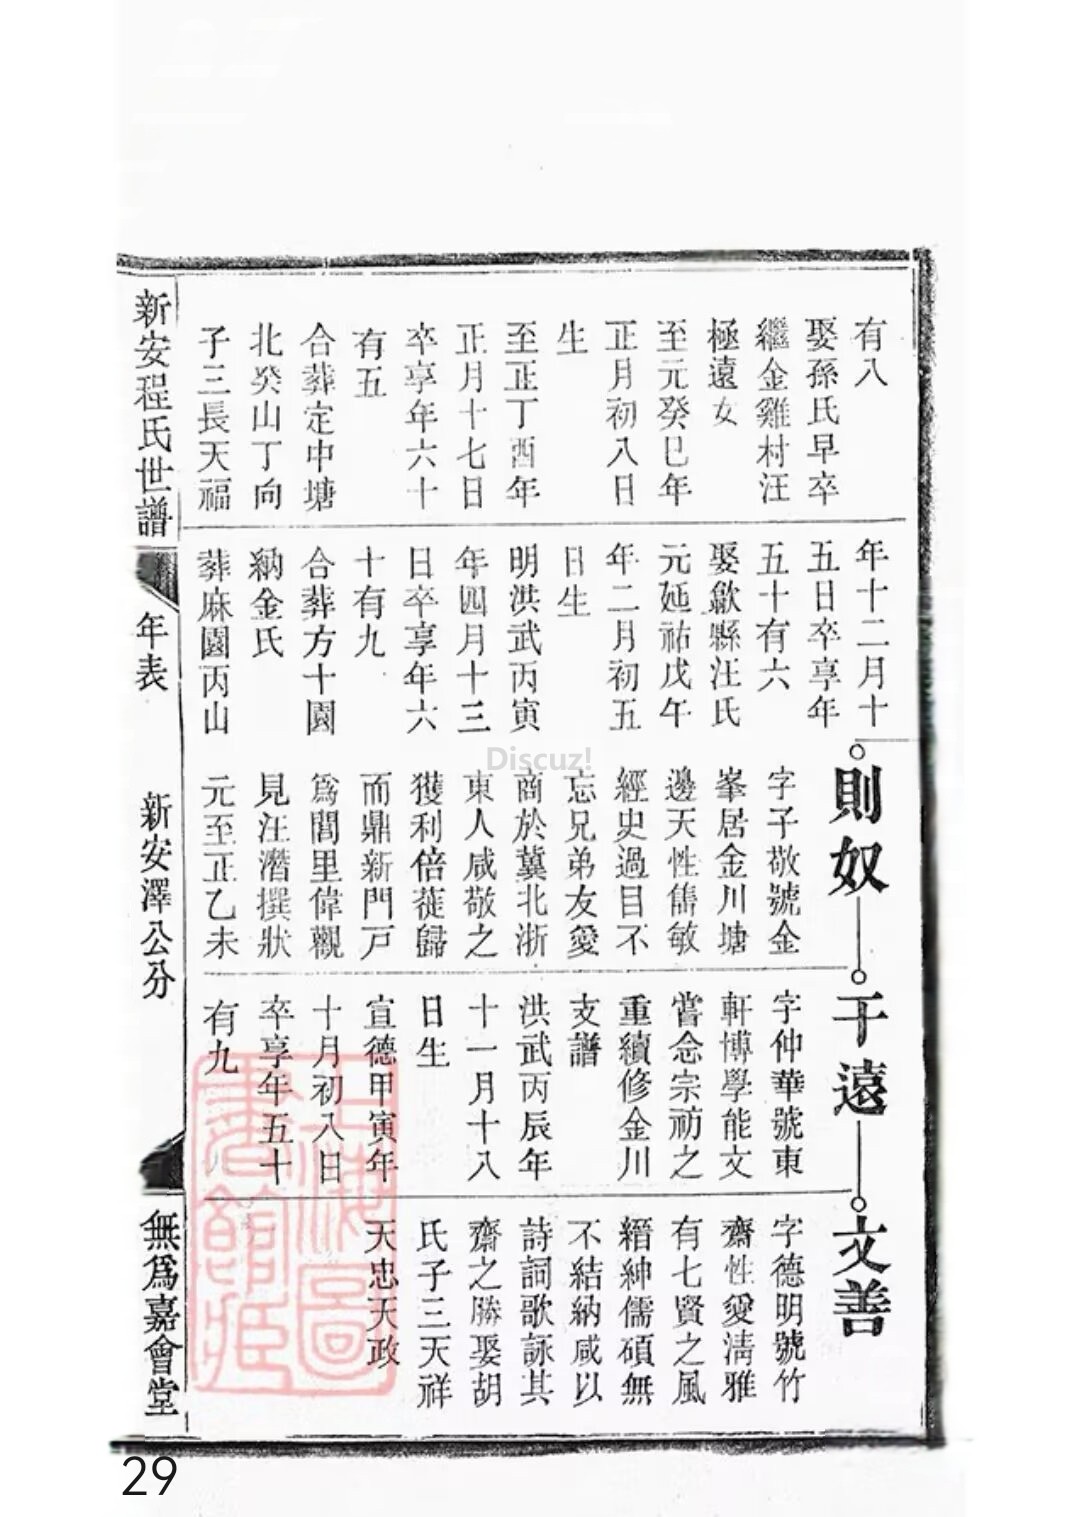 有八
娶孫氏早卒
繼金雞村汪
極遠女
至元癸巳年
正月初八日
生
至正丁酉年
正月十七日
卒享年六十
有五
合葬定中塘
北癸山丁向
子三長天福
年十二月十
五日卒享年
五十有六
娶歙縣汪氏
元延祐戊午
年二月初五
日生
明洪武丙寅
年四月十三
日卒享年六
十有九
合葬方十園
納金氏
葬麻園丙山
則奴
字子敬號金
峯居金川塘
邊天性雋敏
經史過目不
忘兄弟友愛
商於冀北浙
東人咸敬之
獲利倍蓰歸
而鼎新門戸
爲閭里偉觀
見汪濳撰狀
元至正乙未
千遠
字仲華號東
軒博學能文
嘗念宗祊之
重續修金川
支譜
洪武丙辰年
十一月十八
日生
宣德甲寅年
十月初八日
卒享年五十
有九
文善
字德明號竹
齋性愛淸雅
有七賢之風
縉紳儒碩無
不結納咸以
詩詞歌詠其
齋之勝娶胡
氏子三天祥
天忠天政
新安程氏世譜
年表
新安澤公分
無爲嘉會堂
上海圖
書館藏
Discuz!
29